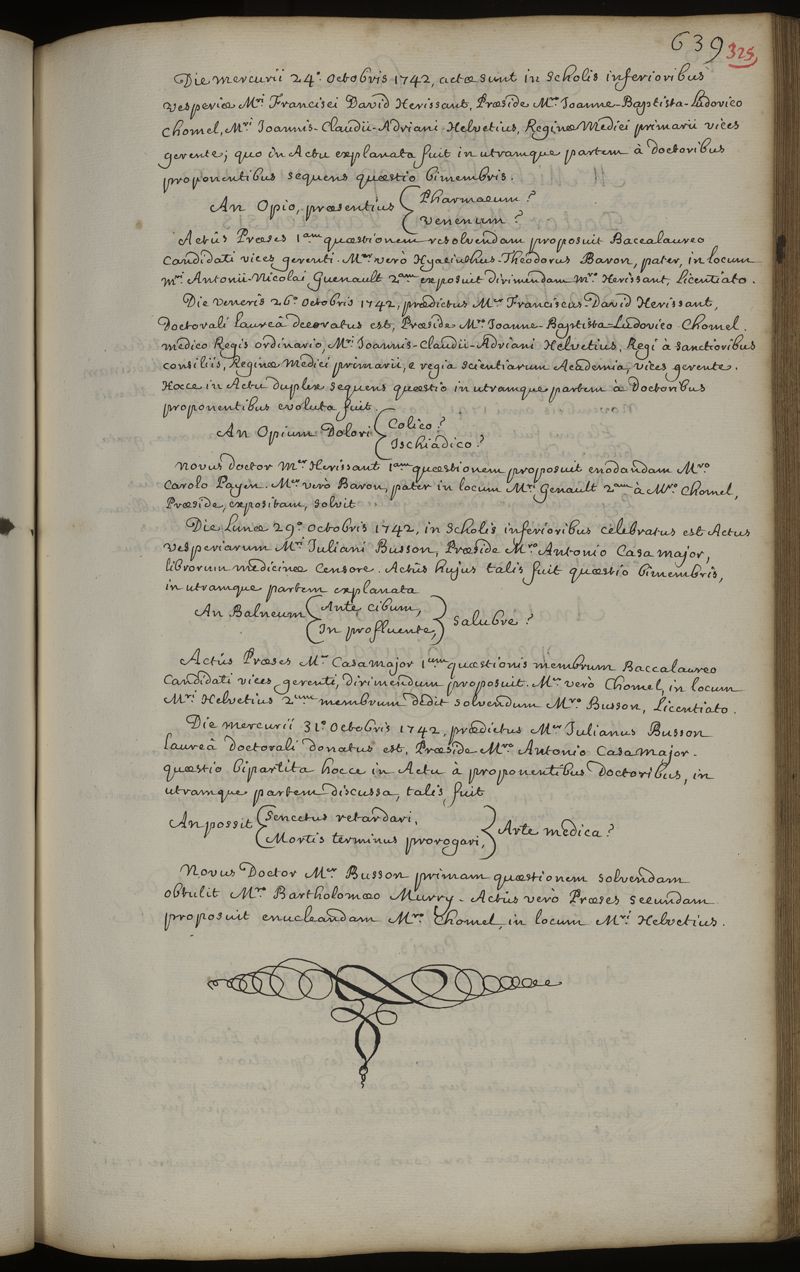 639
325
Die mercurii 24ª. Octobris 1742, actæ sunt in Scholis inferioribus
Vesperiæ Mri Francisci David Herissant, Præside Mro Joanne-Baptista-Ludovico
Chomel, Mri Joannis-Claudii-Adriani Helvetius, Reginæ Medici primarii vices
gerente; quo in Actu explanata fuit in utramque partem à doctoribus
proponentibus sequens quæstio bimembris.
An Opio, præsentius { Pharmacum?
venenum?
Actûs Præses 1am quæstionem resolvendam proposuit Baccalaureo
Candidati vices gerenti. Mer verò Hyacinthus-Theodorus Baron, pater, in locum
Mri Antonii-Nicolai Guenault 2am exposuit dirimendam Mro Herissant, Licentiato.
Die Veneris 26º. Octobris 1742, prædictus Mer Franciscus-David Herissant,
Doctorali laureâ decoratus est, Præside Mro Joanne-Baptista-Ludovico Chomel.
medico Regis ordinario, Mri Joannis-Claudii-Adriani Helvetius, Regi à sanctioribus
consiliis, Reginæ Medici primarii, e regia scientiarum Academia, vices gerente.
Hocce in Actu duplex sequens quæstio in utramque partem à Doctoribus
proponentibus evoluta fuit.
An Opium Dolori { Colico?
Ischiadico?
Novus doctor Mer Herissant 1am quæstionem proposuit enodandam Mro
Carolo Payen. Mer verò Baron, pater in locum Mri Genault 2am à Mro Chomel,
Præside, expositam, solvit.
Die Lunæ 29º. Octobris 1742, in Scholis inferioribus celebratus est Actus
Vesperiarum Mri Juliani Busson, Præside Mro Antonio Casamajor,
librorum medicinæ Censore. Actûs hujus talis fuit quæstio bimembris,
in utramque partem explanata
An Balneum { Ante cibum, } Salubre?
In profluente,
Actûs Præses Mer Casamajor 1um quæstionis membrum Baccalaureo
Candidati vices gerenti, dirimendum proposuit. Mer verò Chomel, in locum
Mri Helvetius 2um membrum dedit solvendum Mro Busson, Licentiato.
Die mercurii 31º. Octobris 1742, prædictus Mer Julianus Busson
laureâ doctorali donatus est, Præside Mro Antonio Casamajor.
quæstio bipartita hocce in Actu à proponentibus Doctoribus, in
utramque partem discussa, talis fuit
An possit { Senectus retardari, } Arte medica?
Mortis terminus prorogari,
Novus Doctor Mer Busson primam quæstionem solvendam
obtulit Mro Bartholomæo Murry. Actûs verò Præses secundam
proposuit enucleandam Mro Chomel, in locum Mri Helvetius.